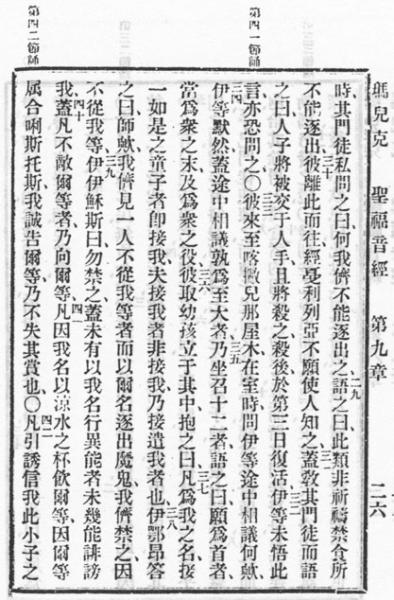 瑪兒克 聖福音經 第九章 二六
第四一節
第四二節
時其門徒私問之曰何我儕不能逐出之語之曰此類非祈禱禁食所
二九
不能逐出彼離此而往經戛利列亞不願使人知之蓋敎其門徒而語
三十 三一
之曰人子將被交于人手且將殺之殺後於第三日復活伊等未悟此
三二
言亦恐問之〇彼來至喀撇兒那屋木在室時問伊等途中相議何歟
三三
伊等默然蓋途中相議孰爲至大者乃坐召十二者語之曰願爲首者
三四 三五
當爲衆之末及爲衆之役彼取幼孩立于其中抱之曰凡爲我之名接
三六 三七
一如是之童子者卽接我夫接我者非接我乃接遣我者也伊鄂昂答
三八
之曰師歟我儕見一人不從我等者而以爾名逐出魔鬼我儕禁之因
不從我等伊伊穌斯曰勿禁之蓋未有以我名行異能者未幾能誹謗
三九
我蓋凡不敵爾等者乃向爾等凡因我名以涼水之杯飲爾等因爾等
四十 四一
属合唎斯托斯我誠告爾等乃不失其賞也〇凡引誘信我此小子之
四二